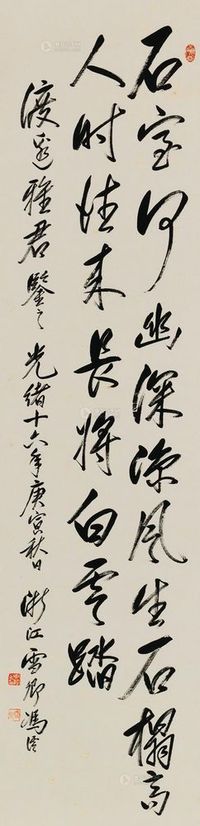 石室何幽深凉风生石榻高
人时往来长将白云踏
渡邊雅君鑒之光绪十六年庚寅秋日浙江雪卿馮澐